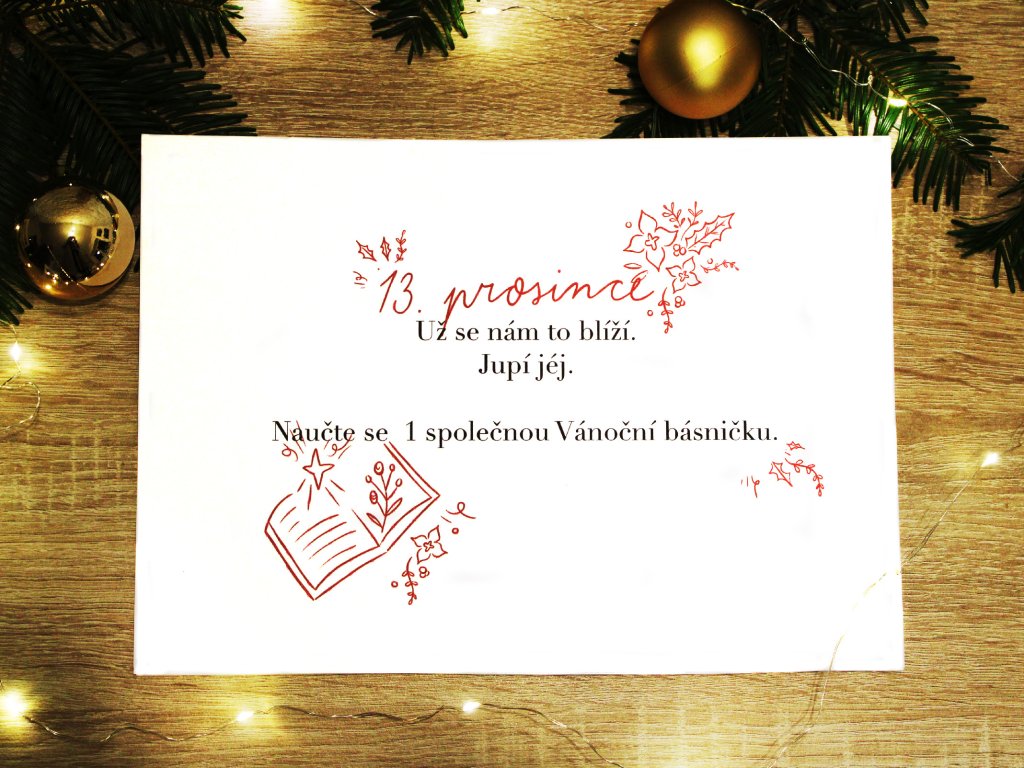 13. prosince
Už se nám to blíží.
Jupí jéj.
Naučte se 1 společnou Vánoční básničku.